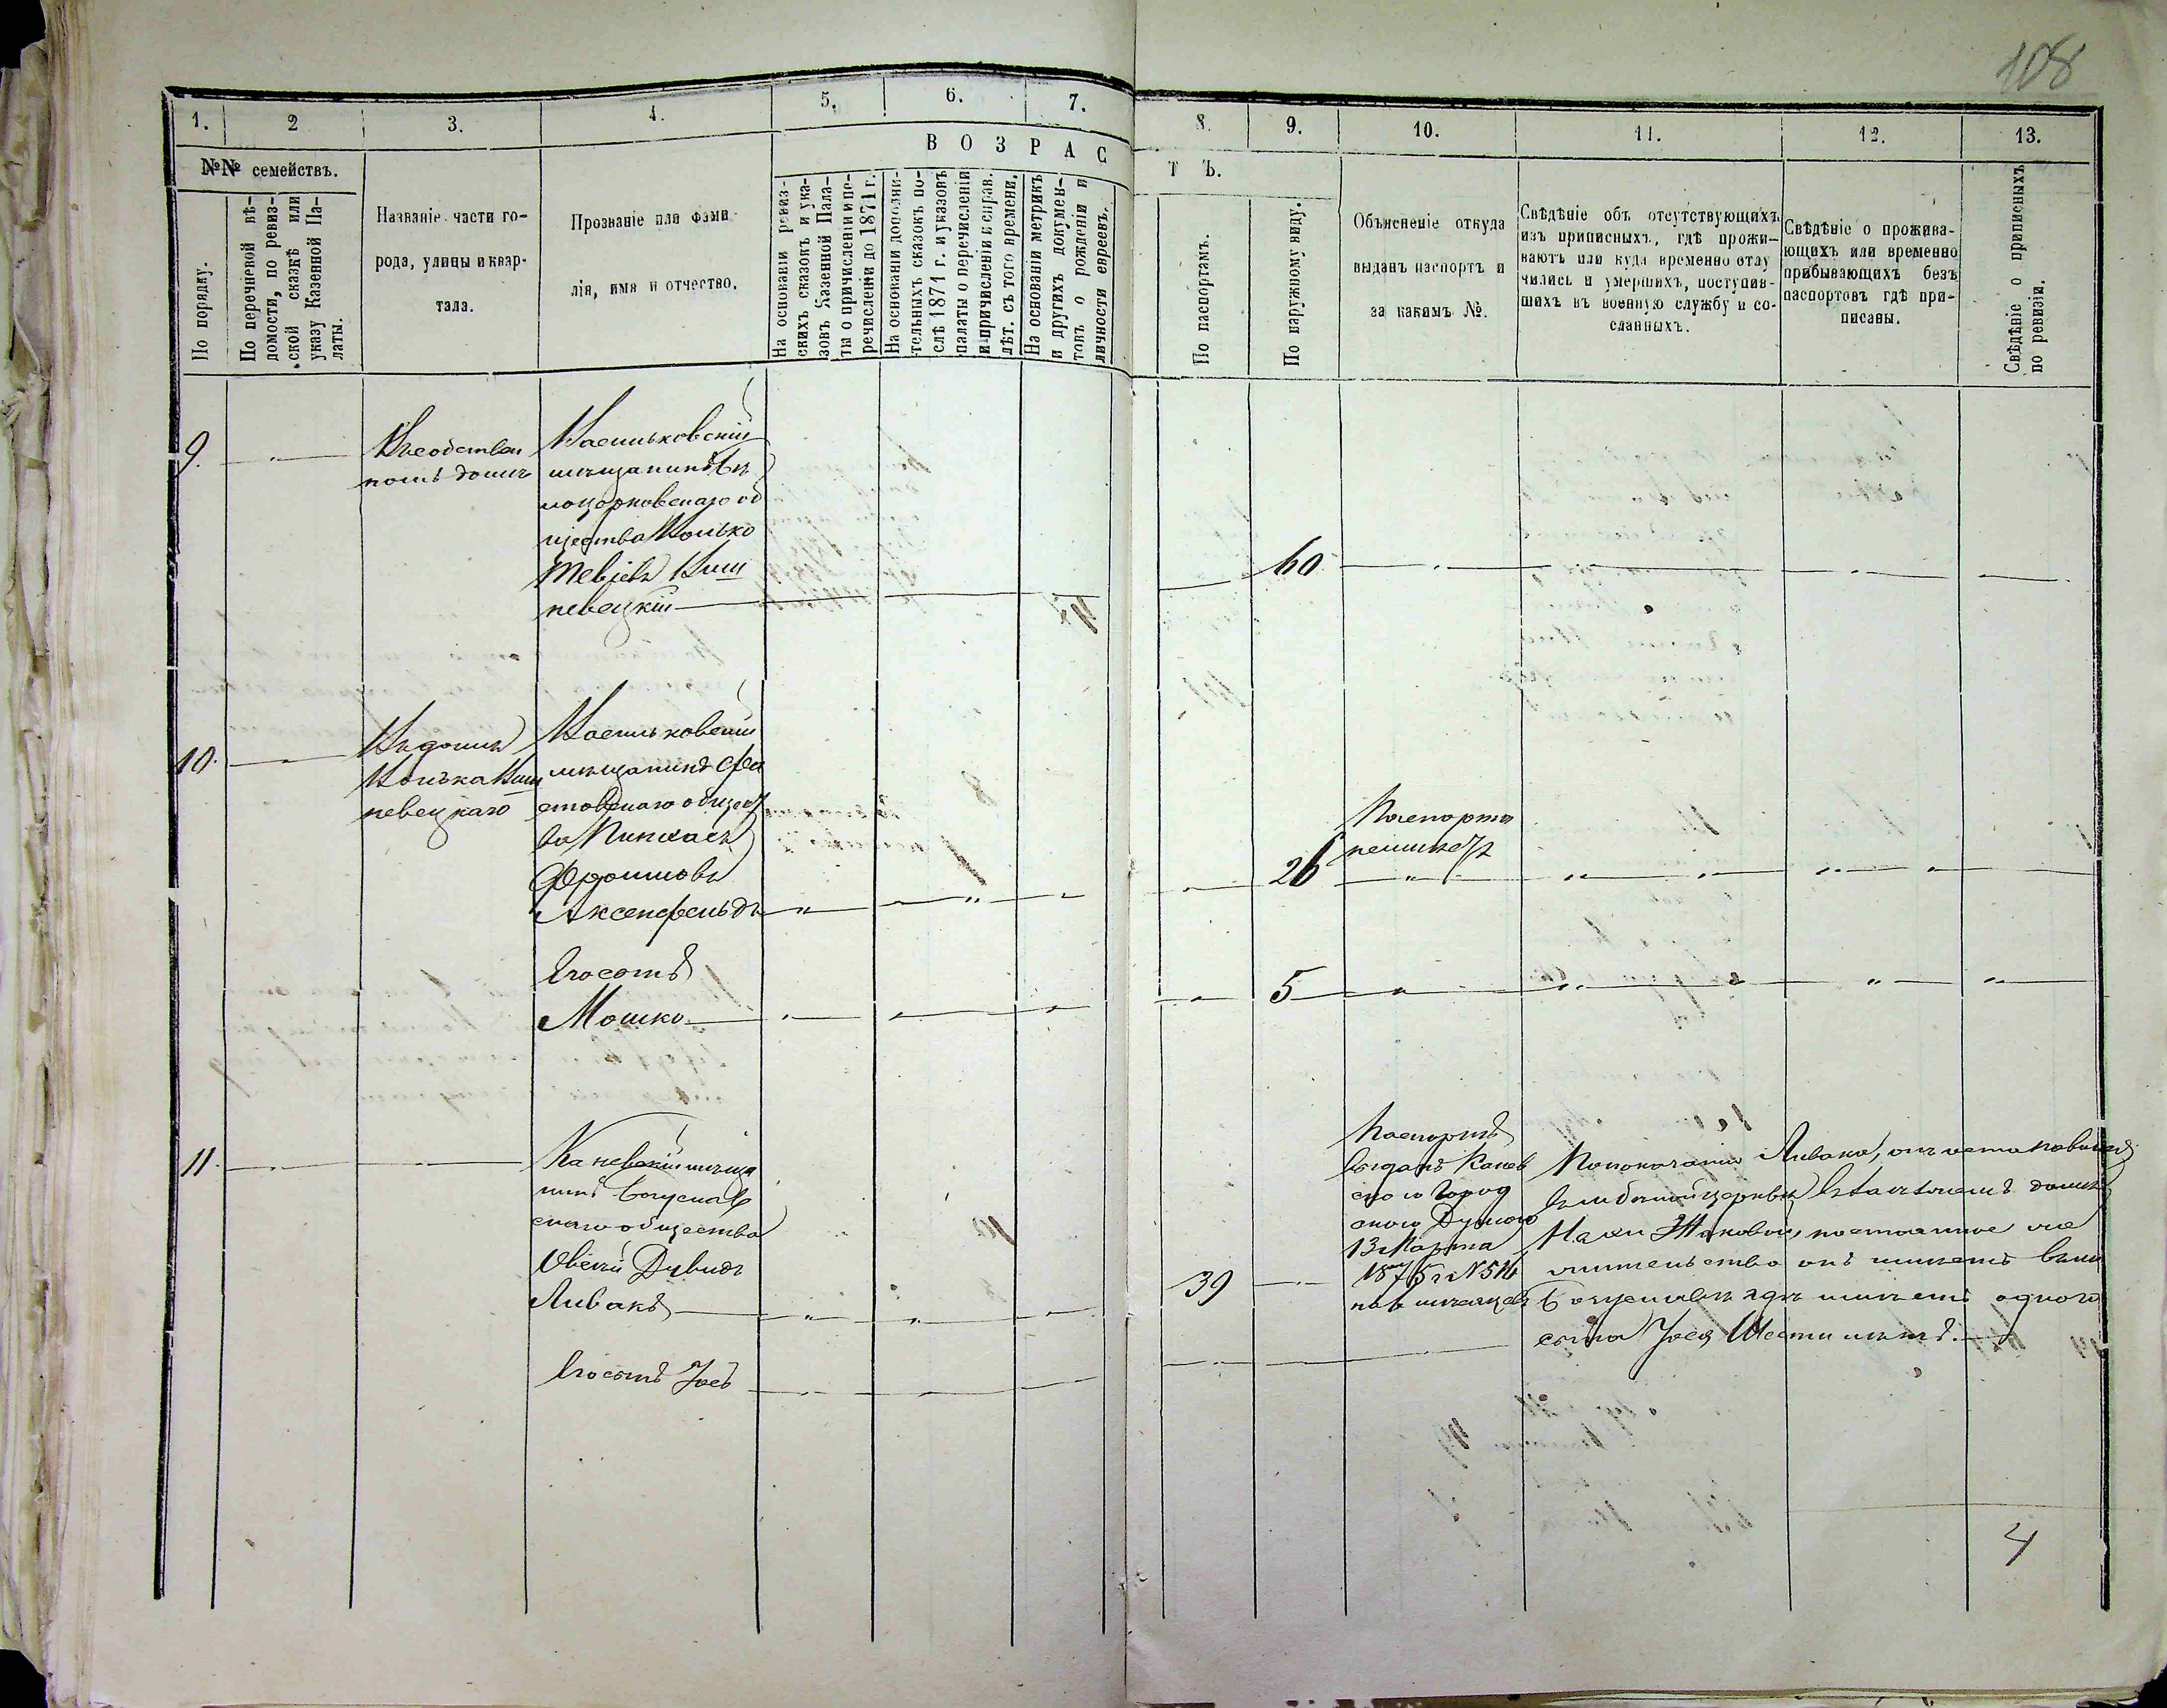 108
1.
2
3.
4.
5.
6.
7.
8.
9.
10.
11.
12.
13.
№№ семействъ.
По порядку.
По перечневой вѣ-
домости, по ревиз-
ской сказкѣ или
указу Казенной Па-
латы.
Названіе части го-
рода, улицы и квар-
тала.
Прозваніе или фами-
лія, имя и отчество.
ВОЗРАС
На основаніи ревиз-
скихъ сказокъ и ука-
зовъ Казенной Пала-
ты о причисленіи и пе-
речисленіи до 1871 г.
На основаніи дополни-
тельныхъ сказокъ по-
слѣ 1871 г. и указовъ
палаты о перечисленіи
и причисленіи и справ.
лѣт. съ того времени.
На основаніи метрикъ
и другихъ докумен-
товъ о рожденіи и
личности евреевъ.
ТЪ.
По паспортамъ.
По наружному виду.
Объясненіе откуда
выданъ паспортъ и
за какимъ №.
Свѣдѣніе объ отсутствующихъ
изъ приписныхъ, гдѣ прожи-
ваютъ или куда временно отлу
чились и умершихъ, поступив-
шихъ въ военную службу и со-
сланныхъ.
Свѣдѣніе о прожива-
ющихъ или временно
прибывающихъ безъ
паспортовъ гдѣ при-
писаны.
Свѣдѣніе о приписныхъ
по ревизіи.
9.
Въсобствен
номъ домѣ
Васильковскій
мѣщанинъ Бѣ
лоцерковскаго об
щества Волько
Тевіевъ Виш
невецкій
60
10.
Въ домѣ
Волька Виш
невецкаго
Васильковскій
мѣщанинъ Фа
стовскаго общест
ва Пинхасъ
Фроимовъ
Аксенфельдъ
26
Паспорта
неимѣетъ
Его сынъ
Мошко
5
11.
Каневскій мѣща
нинъ Богуслав
скаго общества
Овсей Дувидъ
Ливакъ
39
Паспортъ
выданъ Канев
скою Город
скою Думою
13 Марта
1875 г. № 516
на 6 мѣсяцевъ
Попоказанію Ливака, онъ остановился
постоянное жи
тельство онъ имѣетъ въ м.
Богуславѣ гдѣ имѣетъ одного
сына Іося Шести лѣтъ.
Его сынъ Іось
4